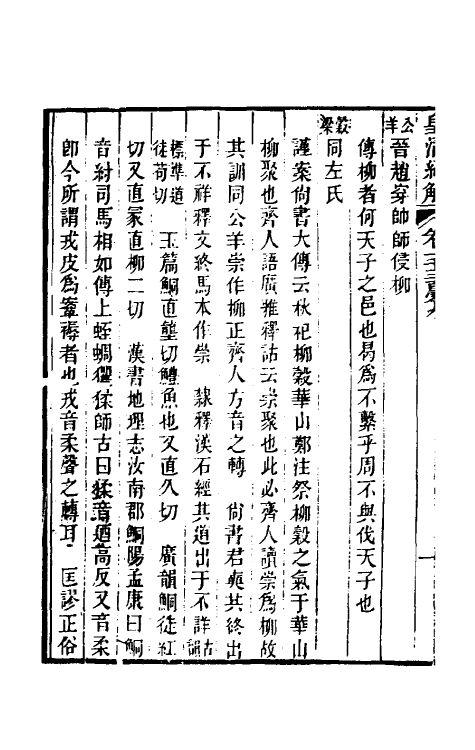 皇清經解
公羊晉趙穿帥師侵柳
傳柳者何天子之邑也曷為不繫乎周不與伐天子也
穀梁同左氏
謹案尙書大傳云秋祀柳穀華山鄭注祭柳穀之氣于華山
柳聚也齊人語廣雅釋詁云崇聚也此必齊人讀崇為柳故
其訓同公羊崇作柳正齊人方音之轉　尙書君奭其終出
于不祥釋文終馬本作崇　隸釋漢石經其道出于不詳古韻
標準道徒苟切　玉篇鮦直壟切鱧魚也又直久切　廣韻鮦徒紅
切又直冢直柳二切　漢書地理志汝南郡鮦陽孟康曰鮦
音紂司馬相如傳上蛭蜩玃猱師古曰猱音乃高反又音柔
卽今所謂戎皮為鞌褥者也戎音柔聲之轉耳　匡謬正俗